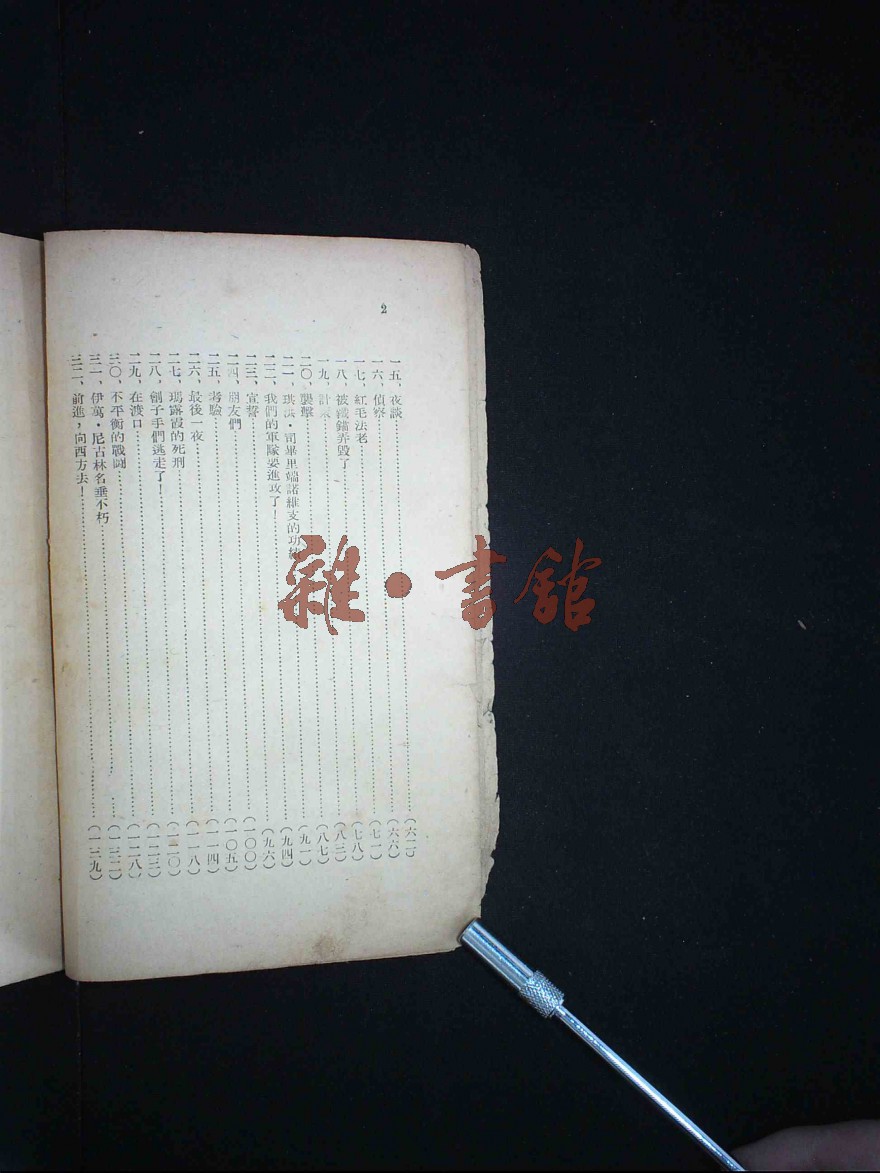 2
一五、夜談……(六二)
一六、偵察……(六六)
一七、紅毛法老……(七一)
一八、被鐵錨弄毀了……(七八)
一九、計……(八三)
二〇、襲擊……(八七)
二一、琪洪・司畢里端諾維支的功……(九一)
二二、我們的軍隊要進攻了！……(九四)
二三、宣誓……(九六)
二四、朋友們……(一〇〇)
二五、考驗……(一〇五)
二六、最後一夜……(一一四)
二七、瑪露霞的死刑……(一一八)
二八、劊子手們逃走了！……(一二〇)
二九、在渡口……(一二三)
三〇、不平衡的戰鬪……(一二八)
三一、伊萬・尼古林名垂不朽……(一三二)
三二、前進，向西方去！……(一三九)
雜・書館